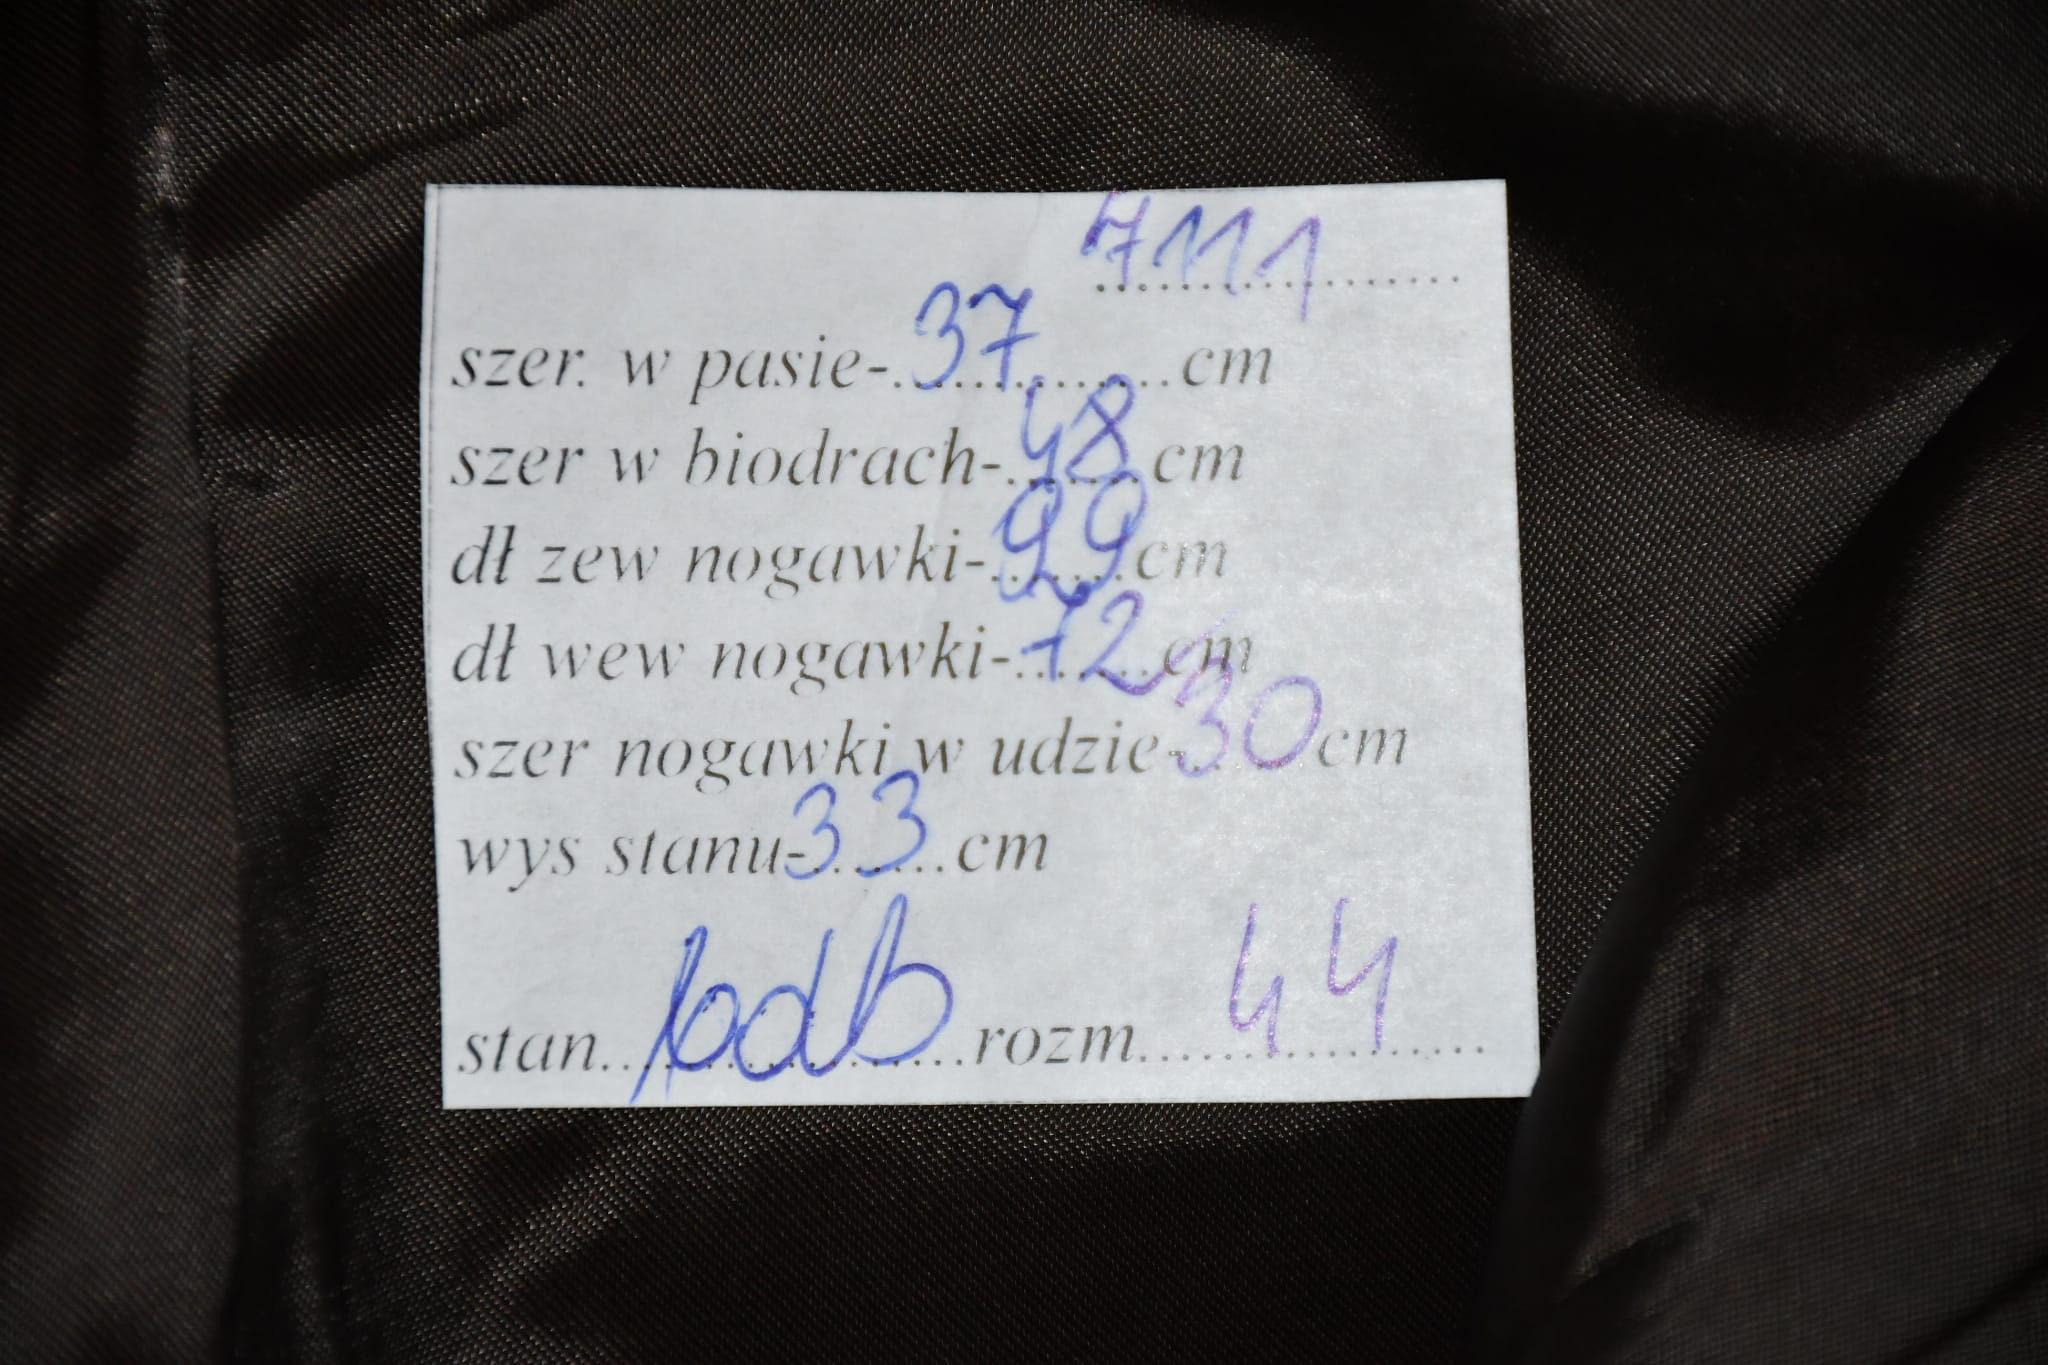 7111
szer. w pasie-37cm
szer w biodrach-48cm
dł zew nogawki-99cm
dł wew nogawki-72cm
szer nogawki w udzie-30cm
wys stanu-33cm
stan bdb rozm 44